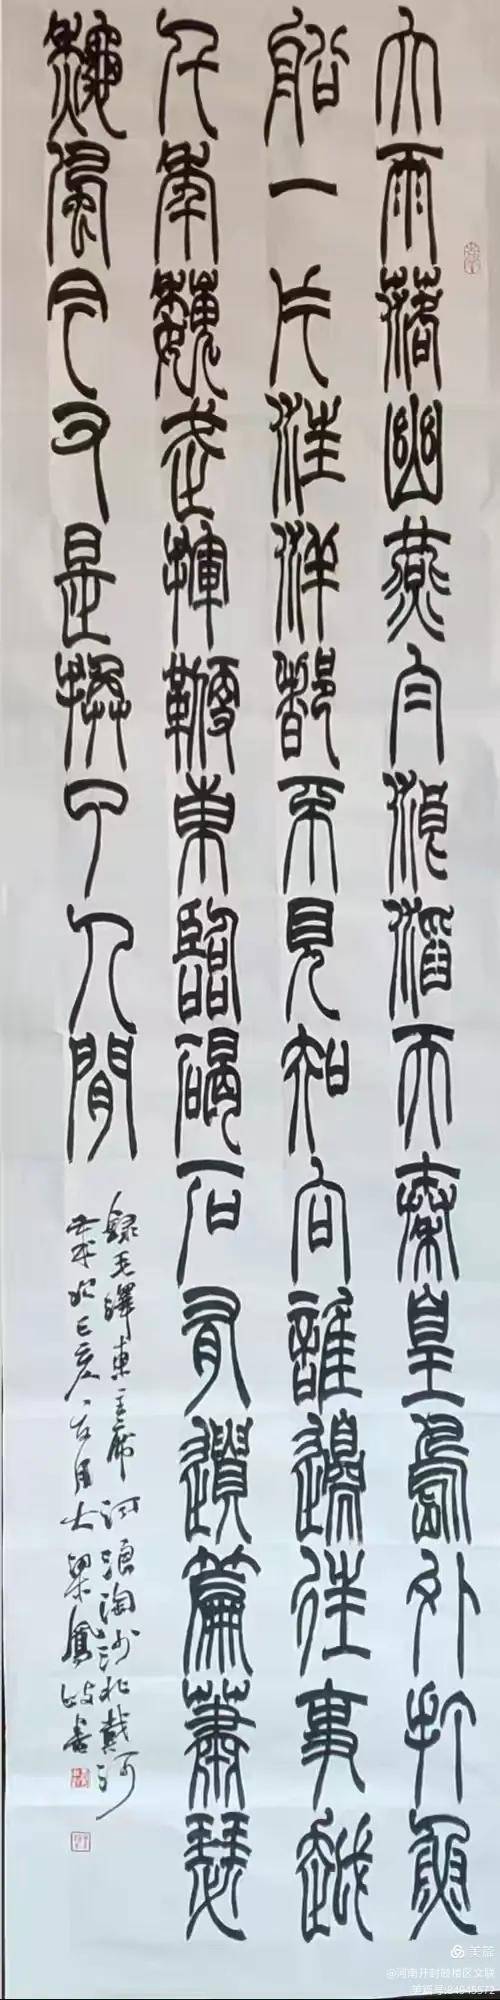 大雨落幽燕白浪滔天秦皇島外打魚
船一片汪洋都不見知向誰邊往事越
千年魏武揮鞭東臨碣石有遺篇蕭瑟
秋風今又是換了人間
錄毛澤東主席詞浪淘沙北戴河
己亥八月大梁鳳岐書
美篇
@河南开封鼓楼区文联
美篇号:84645572